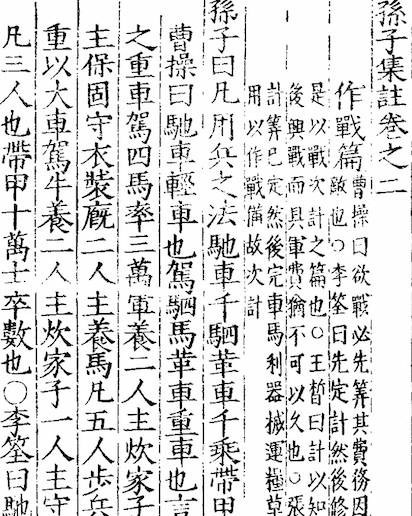 孫子集註卷之二
作戰篇
曹操曰欲戰必先筭其費務因
敵也○李筌曰先定計然後修
是以戰次計之篇也○王晳曰計以知
後興戰而具軍費猶不可以久也○張
計筭已定然後完車馬利器械運糧草
用以作戰備故次計
孫子曰凡用兵之法馳車千駟革車千乘帶甲
曹操曰馳車輕車也駕駟馬革車重車也言
之重車駕四馬率三萬軍養二人主炊家子
主保固守衣裝廐二人主養馬凡五人步兵
重以大車駕牛養二人主炊家子一人主守
凡三人也帶甲十萬士卒數也○李筌曰馳